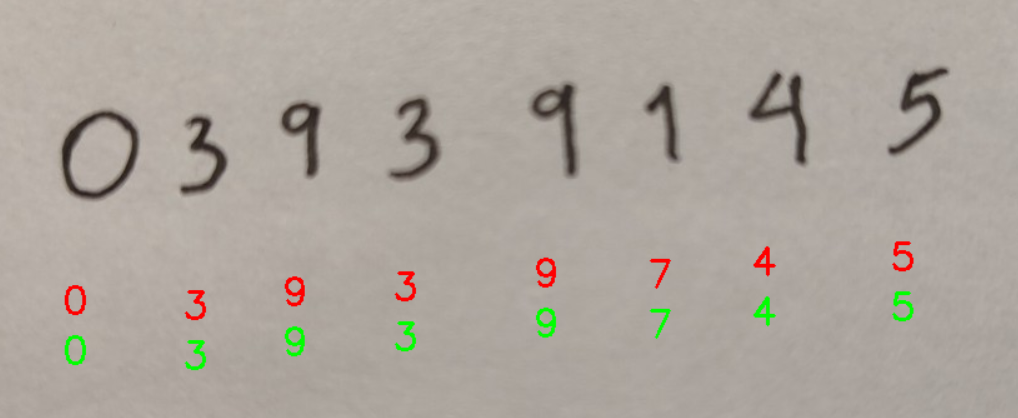 0 3 9 3 9 1 4 5
0 3 9 3 9 7 4 5
0 3 9 3 9 7 4 5